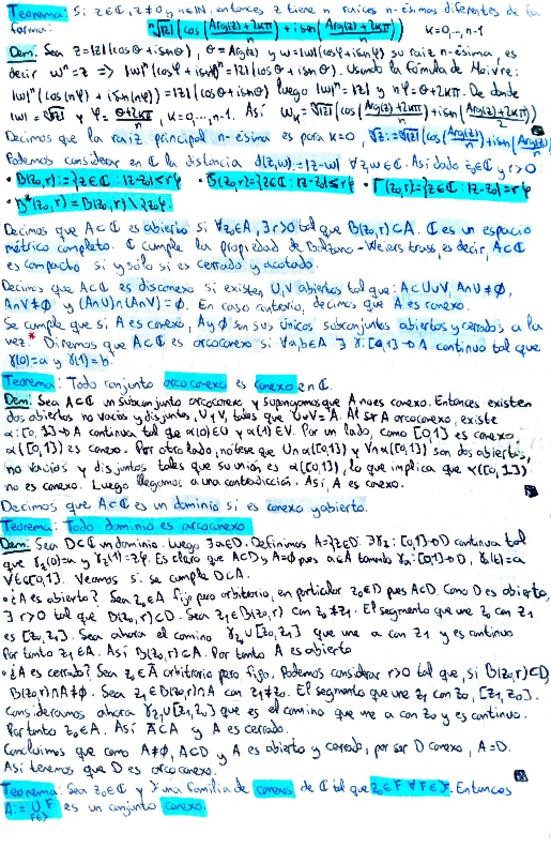 Teorema: Si z∈ℂ, z≠0 y n∈ℕ, entonces z tiene n raíces n-ésimas diferentes de la
forma: ⁿ√|z| (cos(Arg(z)+2kπ / n) + i sen(Arg(z)+2kπ / n)) k=0,...,n-1
Dem: Sea z=|z|(cosθ+isenθ), θ=Arg(z) y w=|w|(cosφ+isenφ) su raíz n-ésima, es
decir wⁿ=z => |w|ⁿ(cosφ+isenφ)ⁿ=|z|(cosθ+isenθ). Usando la fórmula de Moivre:
|w|ⁿ(cos(nφ)+isen(nφ))=|z|(cosθ+isenθ) luego |w|ⁿ=|z| y nφ=θ+2kπ. De donde
|w|=ⁿ√|z| y φ=θ+2kπ / n, k=0,...,n-1. Así w_k=ⁿ√|z|(cos(Arg(z)+2kπ / n)+isen(Arg(z)+2kπ / n))
Decimos que la raíz principal n-ésima es para k=0, ⁿ√z:=ⁿ√|z|(cos(Arg(z)/n)+isen(Arg(z)/n))
Podemos considerar en ℂ la distancia d(z,w)=|z-w| ∀z,w∈ℂ. Así dado z₀∈ℂ y r>0
• B(z₀,r):={z∈ℂ: |z-z₀|<r} • B̄(z₀,r)={z∈ℂ: |z-z₀|≤r} • Γ(z₀,r)={z∈ℂ: |z-z₀|=r}
• B*(z₀,r)=B(z₀,r)\{z₀}.
Decimos que A⊂ℂ es abierto si ∀z₀∈A, ∃r>0 tal que B(z₀,r)⊂A. ℂ es un espacio
métrico completo. ℂ cumple la propiedad de Bolzano-Weierstrass, es decir, A⊂ℂ
es compacto si y sólo si es cerrado y acotado.
Decimos que A⊂ℂ es disconexo si existen U,V abiertos tal que: A⊂U∪V, A∩U≠∅,
A∩V≠∅ y (A∩U)∩(A∩V)=∅. En caso contrario, decimos que A es conexo.
Se cumple que si A es conexo, A y ∅ son sus únicos subconjuntos abiertos y cerrados a la
vez.* Diremos que A⊂ℂ es arcoconexo si ∀a,b∈A ∃ γ:[0,1]→A continuo tal que
γ(0)=a y γ(1)=b.
Teorema: Todo conjunto arcoconexo es conexo en ℂ.
Dem: Sea A⊂ℂ un subconjunto arcoconexo y supongamos que A no es conexo. Entonces existen
dos abiertos no vacíos y disjuntos, U y V, tales que U∪V=A. Al ser A arcoconexo, existe
α:[0,1]→A continua tal que α(0)∈U y α(1)∈V. Por un lado, como [0,1] es conexo,
α([0,1]) es conexo. Por otro lado, nótese que U∩α([0,1]) y V∩α([0,1]) son dos abiertos,
no vacíos y disjuntos tales que su unión es α([0,1]), lo que implica que α([0,1])
no es conexo. Luego llegamos a una contradicción. Así, A es conexo.
Decimos que A⊂ℂ es un dominio si es conexo y abierto.
Teorema: Todo dominio es arcoconexo
Dem: Sea D⊂ℂ un dominio. Luego ∃a∈D. Definimos A={z∈D: ∃γz:[0,1]→D continua tal
que γz(0)=a y γz(1)=z}. Es claro que A⊂D y A≠∅ pues a∈A tomando γa:[0,1]→D, γa(t)=a
∀t∈[0,1]. Veamos si se cumple D⊂A.
• ¿A es abierto? Sea z₀∈A fijo pero arbitrario, en particular z₀∈D pues A⊂D. Como D es abierto,
∃ r>0 tal que B(z₀,r)⊂D. Sea z₁∈B(z₀,r) con z₀≠z₁. El segmento que une z₀ con z₁
es [z₀,z₁]. Sea ahora el camino γz₀∪[z₀,z₁] que une a con z₁ y es continuo.
Por tanto z₁∈A. Así B(z₀,r)⊂A. Por tanto A es abierto
• ¿A es cerrado? Sea z₀∈Ā arbitrario pero fijo. Podemos considerar r>0 tal que, si B(z₀,r)⊂D,
B(z₀,r)∩A≠∅. Sea z₁∈B(z₀,r)∩A con z₁≠z₀. El segmento que une z₁ con z₀, [z₁,z₀].
Consideramos ahora γz₁∪[z₁,z₀] que es el camino que une a con z₀ y es continuo.
Por tanto z₀∈A. Así Ā⊂A y A es cerrado.
Concluimos que como A≠∅, A⊂D y A es abierto y cerrado, por ser D conexo, A=D.
Así tenemos que D es arcoconexo.
Teorema: Sea z₀∈ℂ y F una familia de conexos de ℂ tal que z₀∈F ∀F∈F. Entonces
A:=∪F F∈F es un conjunto conexo.